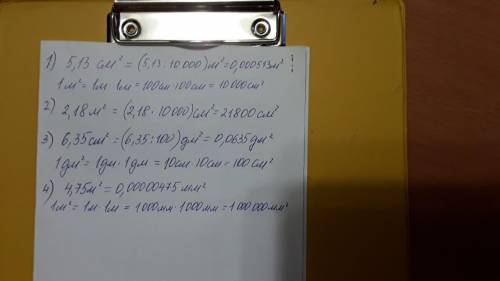 1) 5,13 см² = (5,13 : 10 000) м² = 0,000513 м²
1 м² = 1м · 1м = 100см · 100см = 10 000 см²
2) 2,18 м² = (2,18 · 10000) см² = 21800 см²
3) 6,35 см² = (6,35 : 100) дм² = 0,0635 дм²
1 дм² = 1дм · 1 дм = 10см · 10см = 100 см²
4) 4,75 м² = 0,00000475 мм²
1 м² = 1м · 1м = 1000мм · 1000мм = 1 000 000 мм²